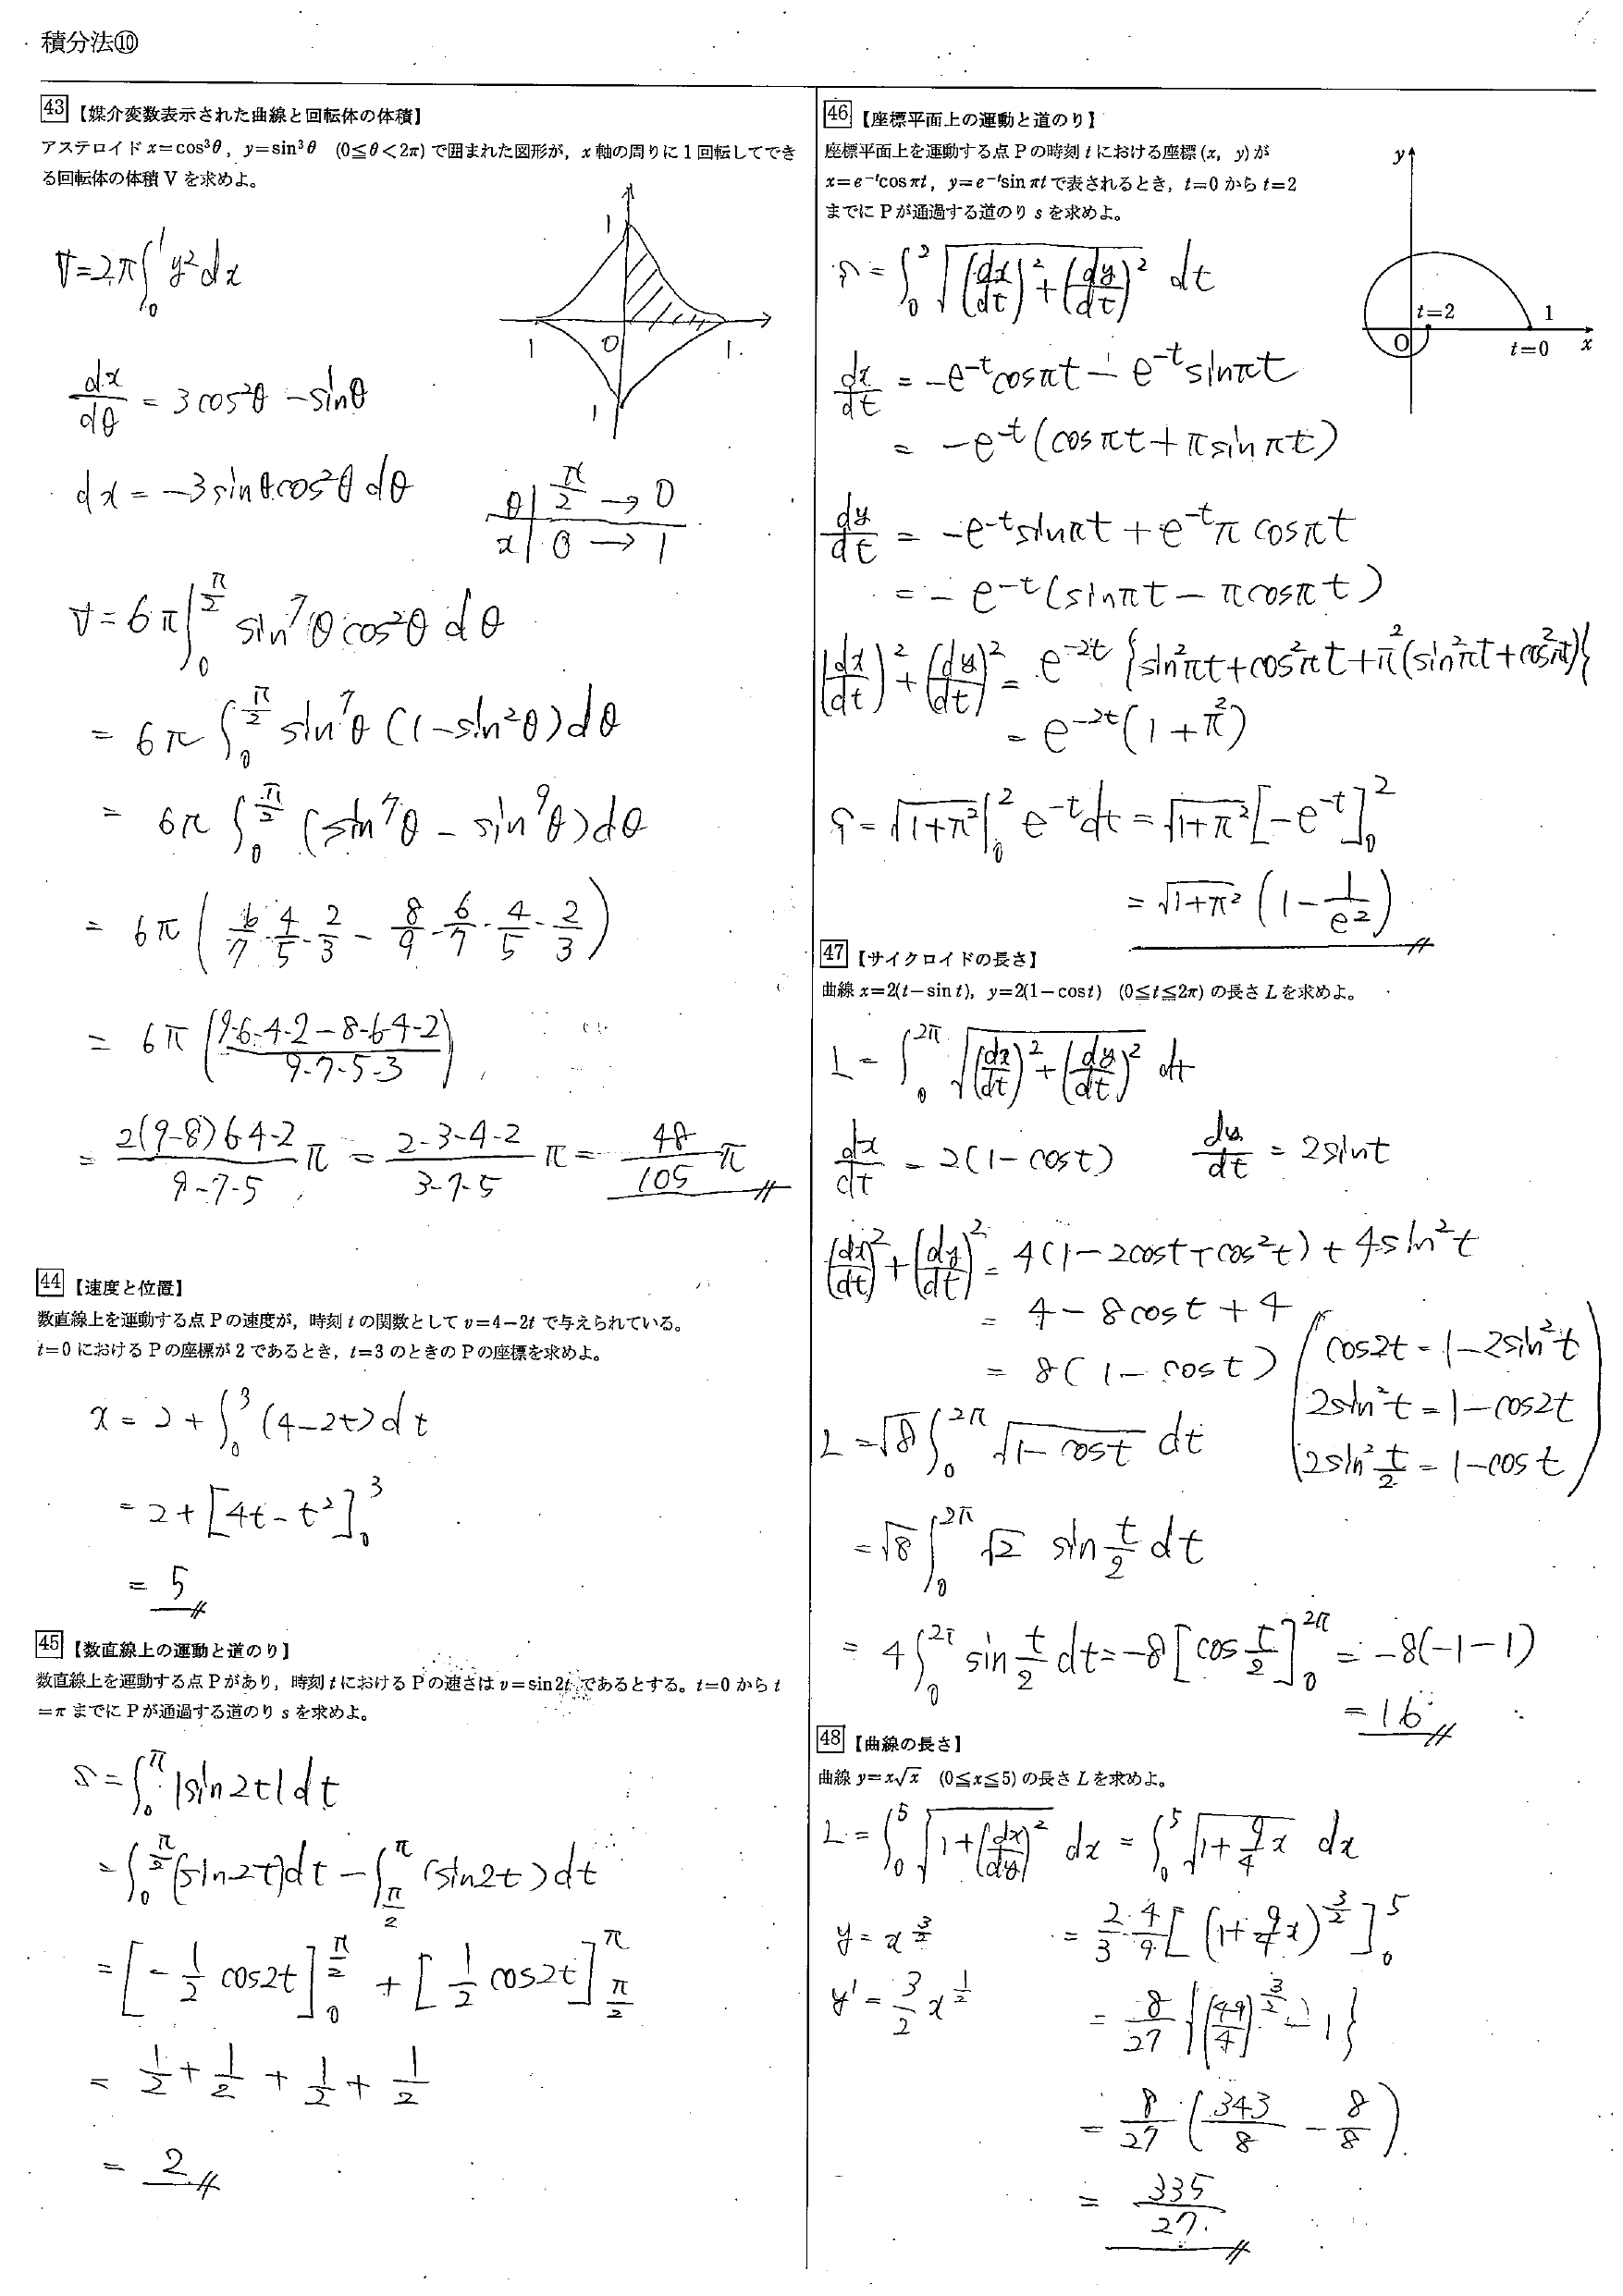 積分法⑩
43【媒介変数表示された曲線と回転体の体積】
アステロイド x=cos³θ, y=sin³θ (0≦θ<2π) で囲まれた図形が, x軸の周りに1回転してでき
る回転体の体積 V を求めよ。
1
1
O
1.
1
V=2π∫₀¹ y²dx
dx/dθ = 3cos²θ −sinθ
dx = −3sinθcos²θ dθ
θ | π/2 → 0
x | 0 → 1
V=6π∫₀^{π/2} sin⁷θcos²θ dθ
= 6π∫₀^{π/2} sin⁷θ(1−sin²θ)dθ
= 6π∫₀^{π/2} (sin⁷θ − sin⁹θ)dθ
= 6π(6/7·4/5·2/3 − 8/9·6/7·4/5·2/3)
= 6π((9·6·4·2−8·6·4·2)/(9·7·5·3))
= 2(9−8)6·4·2/(9·7·5) π = 2·3·4·2/(3·7·5) π = 48/105 π
44【速度と位置】
数直線上を運動する点 P の速度が, 時刻 t の関数として v=4−2t で与えられている。
t=0 における P の座標が 2 であるとき, t=3 のときの P の座標を求めよ。
x = 2+∫₀³(4−2t)dt
= 2+[4t−t²]₀³
= 5
45【数直線上の運動と道のり】
数直線上を運動する点 P があり, 時刻 t における P の速さは v=sin2t であるとする。t=0 から t
=π までに P が通過する道のり s を求めよ。
s=∫₀^π |sin2t|dt
=∫₀^{π/2}(sin2t)dt −∫_{π/2}^π(sin2t)dt
=[−1/2 cos2t]₀^{π/2} + [1/2 cos2t]_{π/2}^π
= 1/2+1/2+1/2+1/2
= 2
46【座標平面上の運動と道のり】
座標平面上を運動する点 P の時刻 t における座標 (x, y) が
x=e⁻ᵗcosπt, y=e⁻ᵗsinπt で表されるとき, t=0 から t=2
までに P が通過する道のり s を求めよ。
y
t=2
1
O
t=0
x
s=∫₀²√((dx/dt)²+(dy/dt)²) dt
dx/dt = −e⁻ᵗcosπt − e⁻ᵗsinπt
= −e⁻ᵗ(cosπt+πsinπt)
dy/dt = −e⁻ᵗsinπt + e⁻ᵗπcosπt
= −e⁻ᵗ(sinπt−πcosπt)
(dx/dt)²+(dy/dt)² = e⁻²ᵗ{sin²πt+cos²πt+π²(sin²πt+cos²πt)}
= e⁻²ᵗ(1+π²)
s=√(1+π²)∫₀² e⁻ᵗdt=√(1+π²)[−e⁻ᵗ]₀²
= √(1+π²)(1−1/e²)
47【サイクロイドの長さ】
曲線 x=2(t−sint), y=2(1−cost) (0≦t≦2π) の長さ L を求めよ。
L=∫₀^{2π}√((dx/dt)²+(dy/dt)²) dt
dx/dt = 2(1−cost) dy/dt = 2sint
(dx/dt)²+(dy/dt)² = 4(1−2cost+cos²t)+4sin²t
= 4−8cost+4
= 8(1−cost)
(cos2t=1−2sin²t
2sin²t=1−cos2t
2sin² t/2 = 1−cost)
L=√8∫₀^{2π}√(1−cost) dt
=√8∫₀^{2π}√2 sin t/2 dt
= 4∫₀^{2π} sin t/2 dt=−8[cos t/2]₀^{2π} = −8(−1−1)
= 16
48【曲線の長さ】
曲線 y=x√x (0≦x≦5) の長さ L を求めよ。
L=∫₀⁵√(1+(dx/dy)²) dx = ∫₀⁵√(1+9/4 x) dx
y=x^{3/2}
y'=3/2 x^{1/2}
= 2/3·4/9[(1+9/4 x)^{3/2}]₀⁵
= 8/27{(49/4)^{3/2}−1}
= 8/27(343/8−8/8)
= 335/27